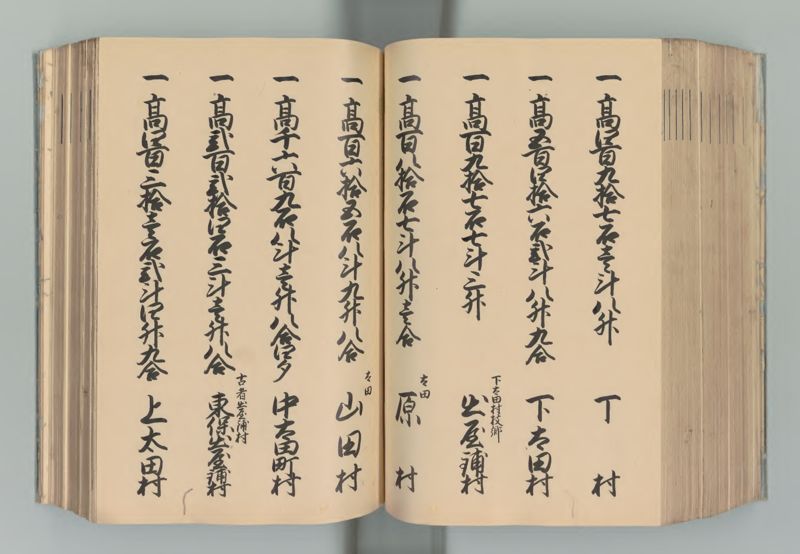 一 高四百九拾七石壱斗八升 丁村
一 高五百四拾六石弐斗八升九合 下太田村
下太田村枝郷
一 高百九拾七石七斗三升 出屋鋪村
太田
一 高百八拾石七斗八升壱合 原村
太田
一 高百六拾五石八斗九升八合 山田村
一 高千六百九石八斗壱升八合四夕 中太田町村
古者出屋鋪村
一 高弐百弐拾四石三斗壱升八合 東保出屋鋪村
一 高四百三拾壱石弐斗四升九合 上太田村